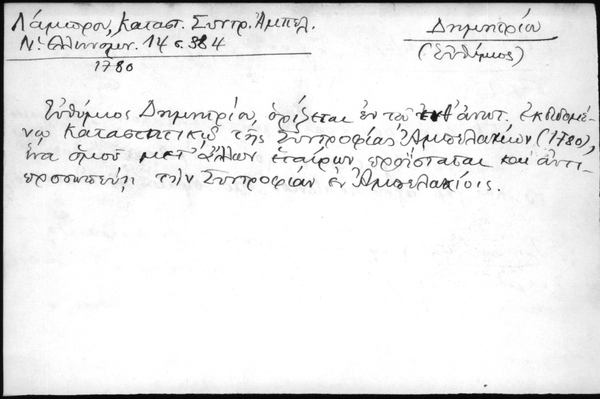 Λάμπρου, Καταστ. Συντρ. Ἀμπελ.
Ν. Ἑλληνομν. 14 σ. 384
1780
Δημητρίου
(Εὐθύμιος)
Εὐθύμιος Δημητρίου, ὁρίζεται ἐν τῷ ἀνωτ. ἐκδιδομέ-
νῳ Καταστατικῷ τῆς Συντροφίας Ἀμπελακίων (1780),
ἵνα ὁμοῦ μετ' ἄλλων ἑταίρων προΐσταται καὶ ἀντι-
προσωπεύῃ τὴν Συντροφίαν ἐν Ἀμπελακίοις.